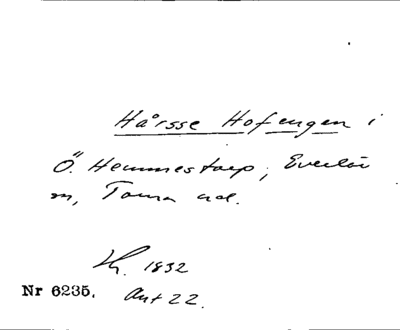 Hårsse Hofengen i
Ö. Hemmestorp, Everlöv
sn, Torna hd.
Lh. 1832
Nr 6235. Ant 22.